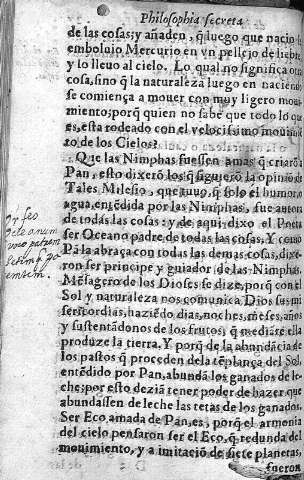 Philosophia secreta
de las cosas: y añaden, q̃ luego que nacio lo
emboluio Mercurio en vn pellejo de liebre
y lo lleuo al cielo. Lo qual no significa otra
cosa, sino q̃ la naturaleza luego en naciendo
se comiença a mouer con muy ligero moui
miento; porq̃ quien no sabe que todo lo que
es, esta rodeado con el velocissimo mouimiẽ
to de los Cielos?
Que las Nimphas fuessen amas q̃ criarõ a
Pan, esto dixerõ los q̃ siguierõ la opiniõ de
Tales Milesio, que tuuo, q̃ solo el humor, o
agua, entẽdida por las Nimphas, fue autora
de todas las cosas: y de aqui, dixo el Poeta
ser Oceano padre de todas las cosas. Y como
Pã la abraça con todas las demas cosas, dixe
ron ser principe y guiador de las Nimphas.
Mẽsagero de los Dioses se dize, porq̃ con el
Sol y naturaleza nos comunica Dios sus mi
sericordias, haziẽdo dias, noches, meses, años
y sustentãdonos de los frutos, q̃ mediãte ella
produze la tierra. Y porq̃ de la abundãcia de
los pastos q̃ proceden de la tẽplança del Sol
entẽdido por Pan, abundã los ganados de le
che: por esto deziã tener poder de hazer que
abundassen de leche las tetas de los ganados.
Ser Eco, amada de Pan, es, porq̃ el armonia
del cielo pensaron ser el Eco, q̃ redunda del
mouimiento, y a imitaciõ de siete planetas,
fueron
Orfeo
patrem